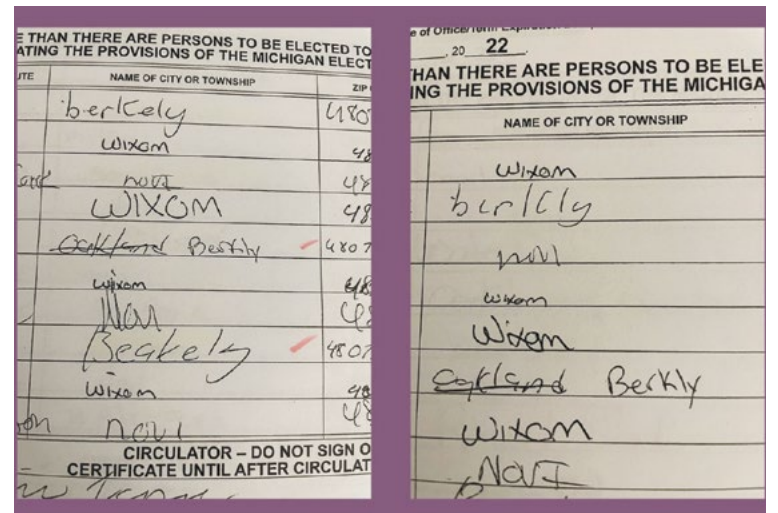 E THAN THERE ARE PERSONS TO BE ELECTED TO
ATING THE PROVISIONS OF THE MICHIGAN ELECT
UTE NAME OF CITY OR TOWNSHIP ZIP
berkely 480
wixom 48
novi 48
WIXOM 48
Oakland Berkly 4807
wixom 48
Novi
Beakely 4807
Wixom 48
on novi 48
CIRCULATOR – DO NOT SIGN O
CERTIFICATE UNTIL AFTER CIRCULAT
e of Office/Term Expiration
, 20 22
THAN THERE ARE PERSONS TO BE ELE
ING THE PROVISIONS OF THE MICHIGA
NAME OF CITY OR TOWNSHIP
wixom
berkly
novi
wixom
Wixom
Oakland Berkly
WIXOM
NOVI